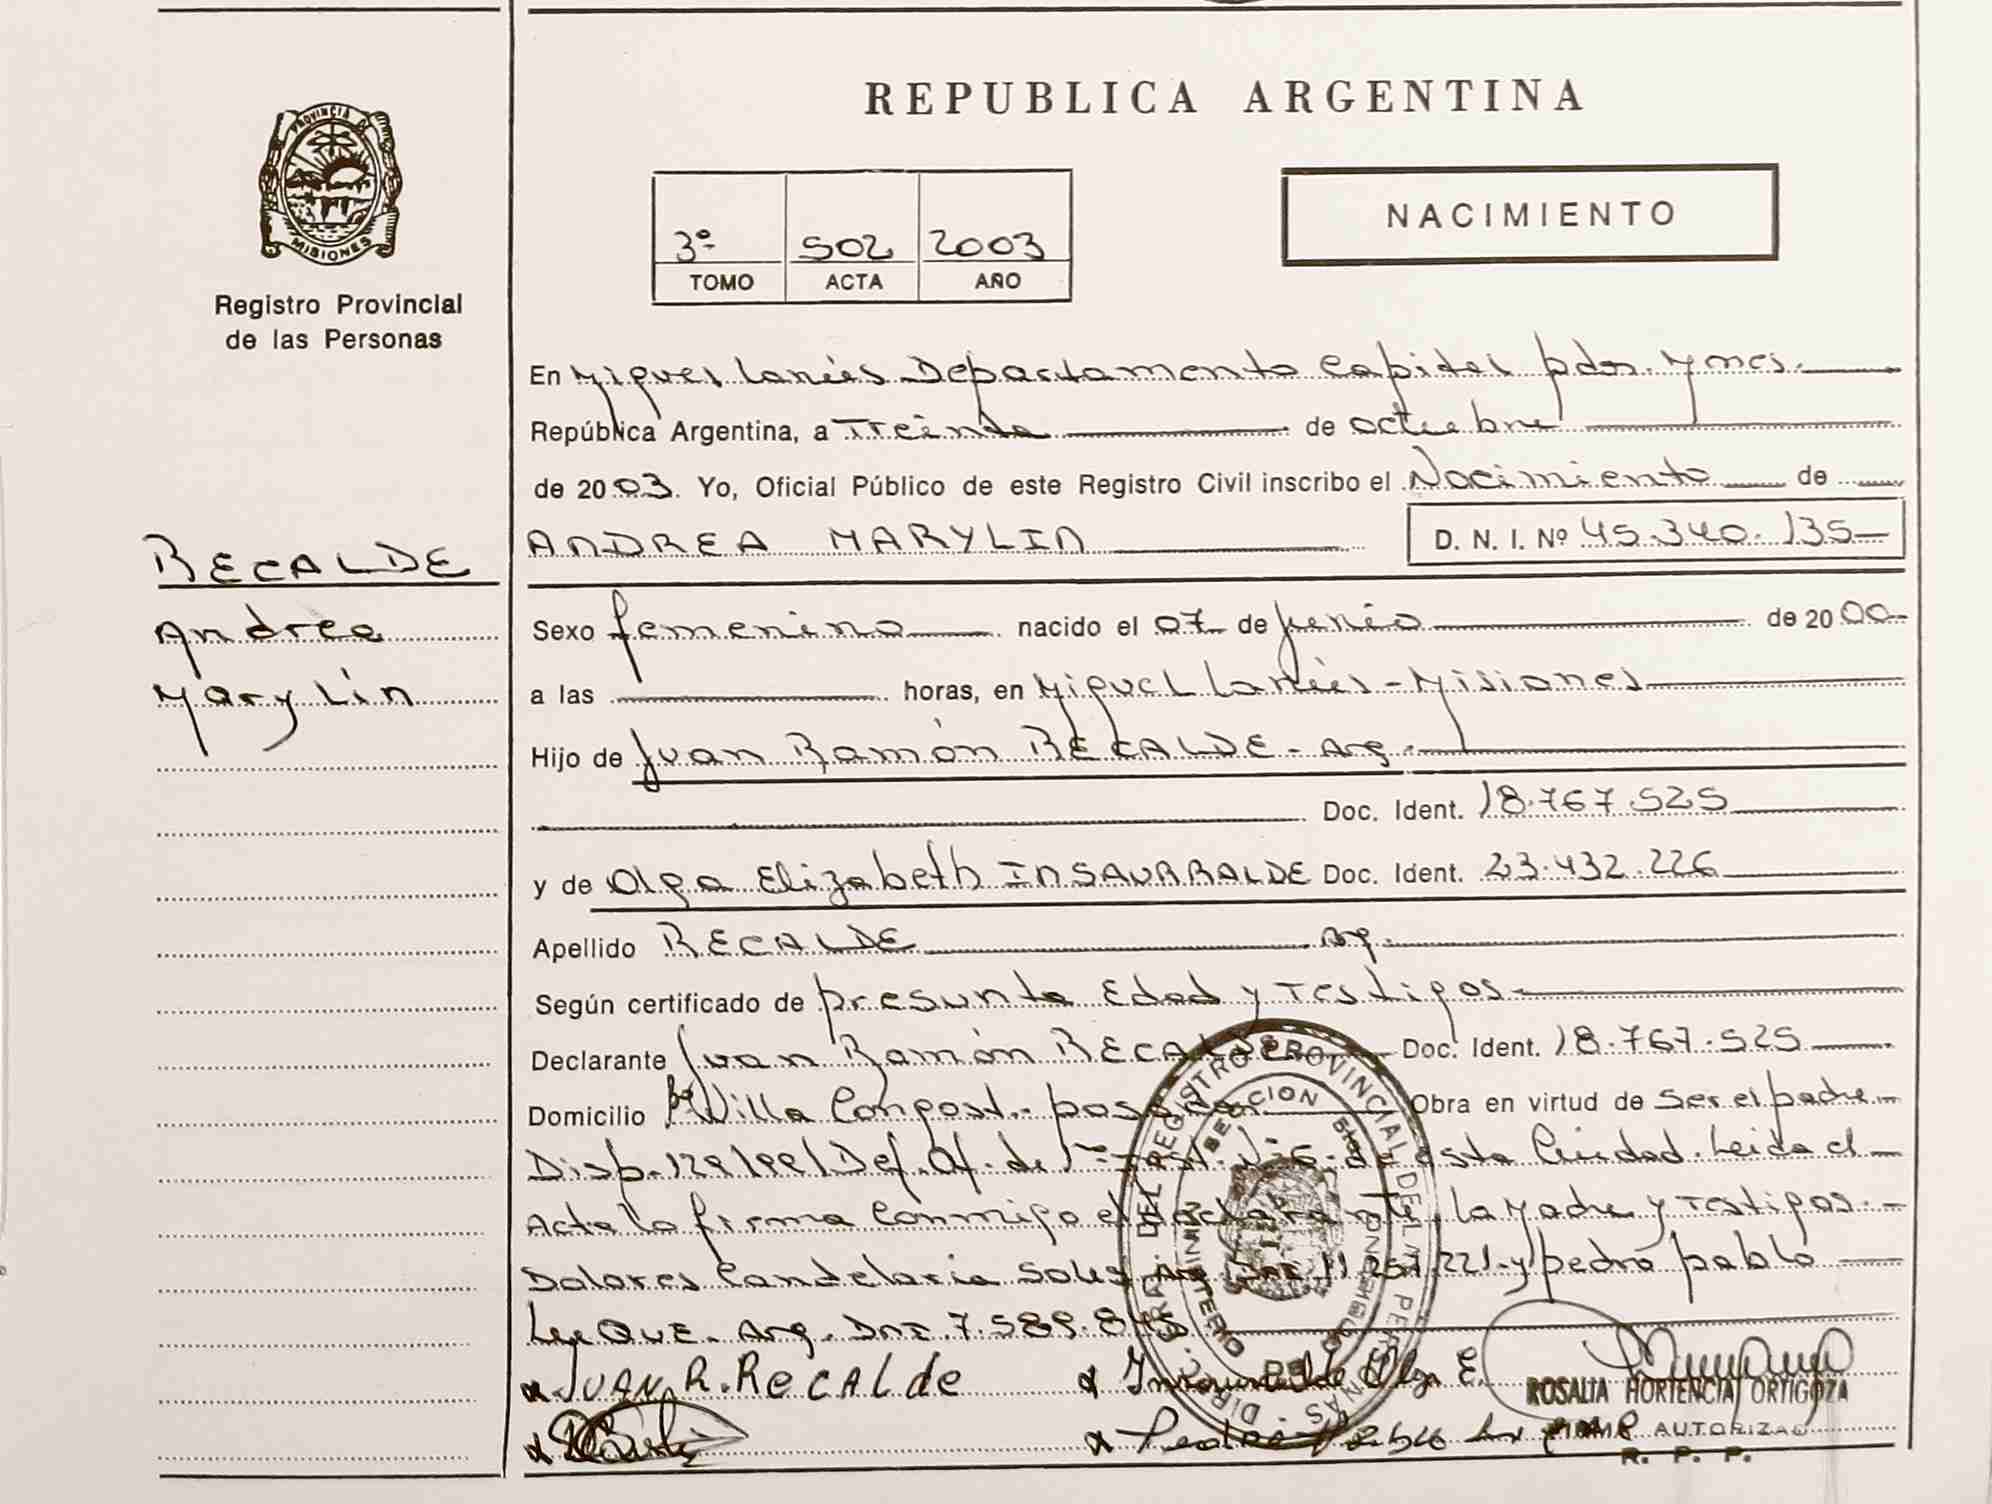 REPUBLICA ARGENTINA
PROVINCIA DE
MISIONES
Registro Provincial
de las Personas
3º 502 2003
TOMO ACTA AÑO
NACIMIENTO
En Miguel Lanús Departamento Capital pdas. Mnes.
República Argentina, a Treinta de octubre
de 2003. Yo, Oficial Público de este Registro Civil inscribo el Nacimiento de
ANDREA MARYLIN D. N. I. Nº 45.340.135
RECALDE
Andrea
Marylin
Sexo femenino nacido el 07 de junio de 2000
a las horas, en Miguel Lanús - Misiones
Hijo de Juan Ramón RECALDE - Arg.
Doc. Ident. 18.767.525
y de Olga Elizabeth INSAURRALDE Doc. Ident. 23.432.226
Apellido RECALDE Arg.
Según certificado de presunta Edad y Testigos
Declarante Juan Ramón RECALDE Doc. Ident. 18.767.525
Domicilio Bº Villa Compost. posadas Obra en virtud de Ser el padre
Disp. 129/991 Def. Of. de 1 de esta Ciudad. Leida el
Acta la firma conmigo el declarante, la Madre y Testigos
Dolores Candelaria Arg. DNI y pedro pablo
LuQUE. Arg. DNI 7.589.
JUAN R. RecALde Insaurralde Olga E.
Pedro Pablo
ROSALIA HORTENCIA ORTIGOZA
AUTORIZAD
R. P. P.